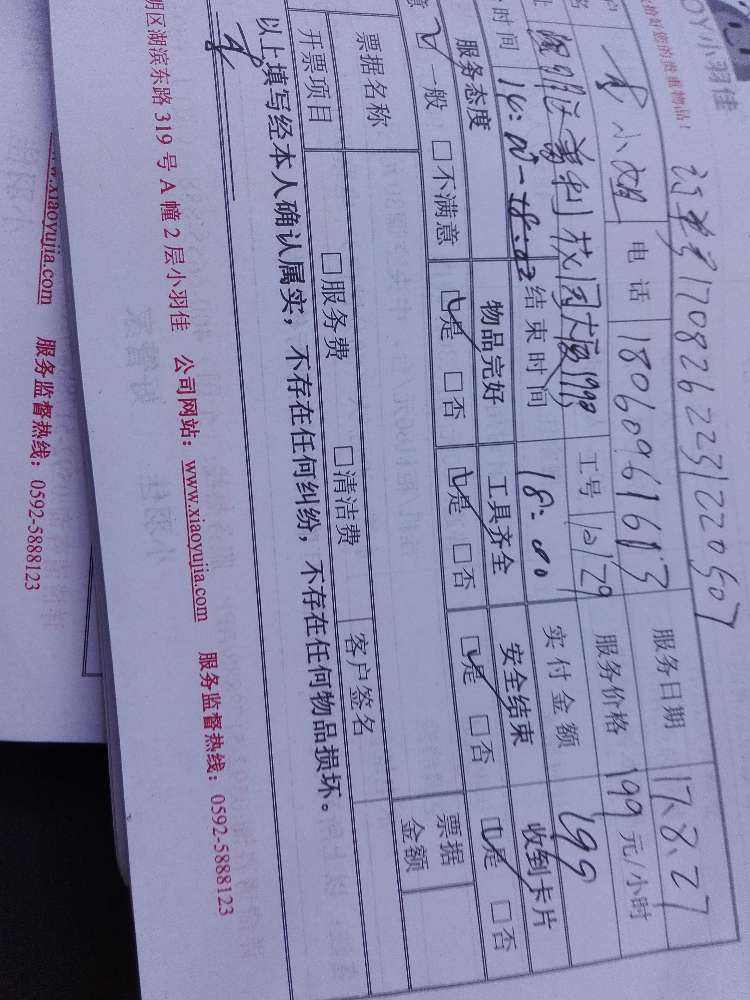 OY小羽佳
您的贵重物品！
订单号1708262231220507
小姐 电话 18060961613 服务日期 17.8.27
工号 12129 服务价格 199 元/小时
时间 14:00-18:00 结束时间 18:00 实付金额 199
服务态度 物品完好 工具齐全 安全结束 收到卡片
意 ☑一般 □不满意 ☑是 □否 ☑是 □否 ☑是 □否 ☑是 □否
票据名称 客户签名 票据金额
开票项目 □服务费 □清洁费
以上填写经本人确认属实，不存在任何纠纷，不存在任何物品损坏。
明区湖滨东路 319 号 A 幢 2 层小羽佳 公司网站：www.xiaoyujia.com 服务监督热线：0592-5888123
www.xiaoyujia.com 服务监督热线：0592-5888123